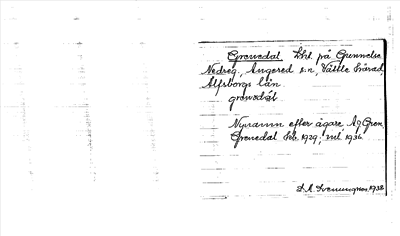 Grenedal Lht. på Gunnilse
Nedreg., Angered s:n, Vättle härad,
Älfsborgs län.
grenedal
Nynamn efter ägare A. Gren,
Grenedal feb. 1929; 1936
D. A. Svenungsson 1938